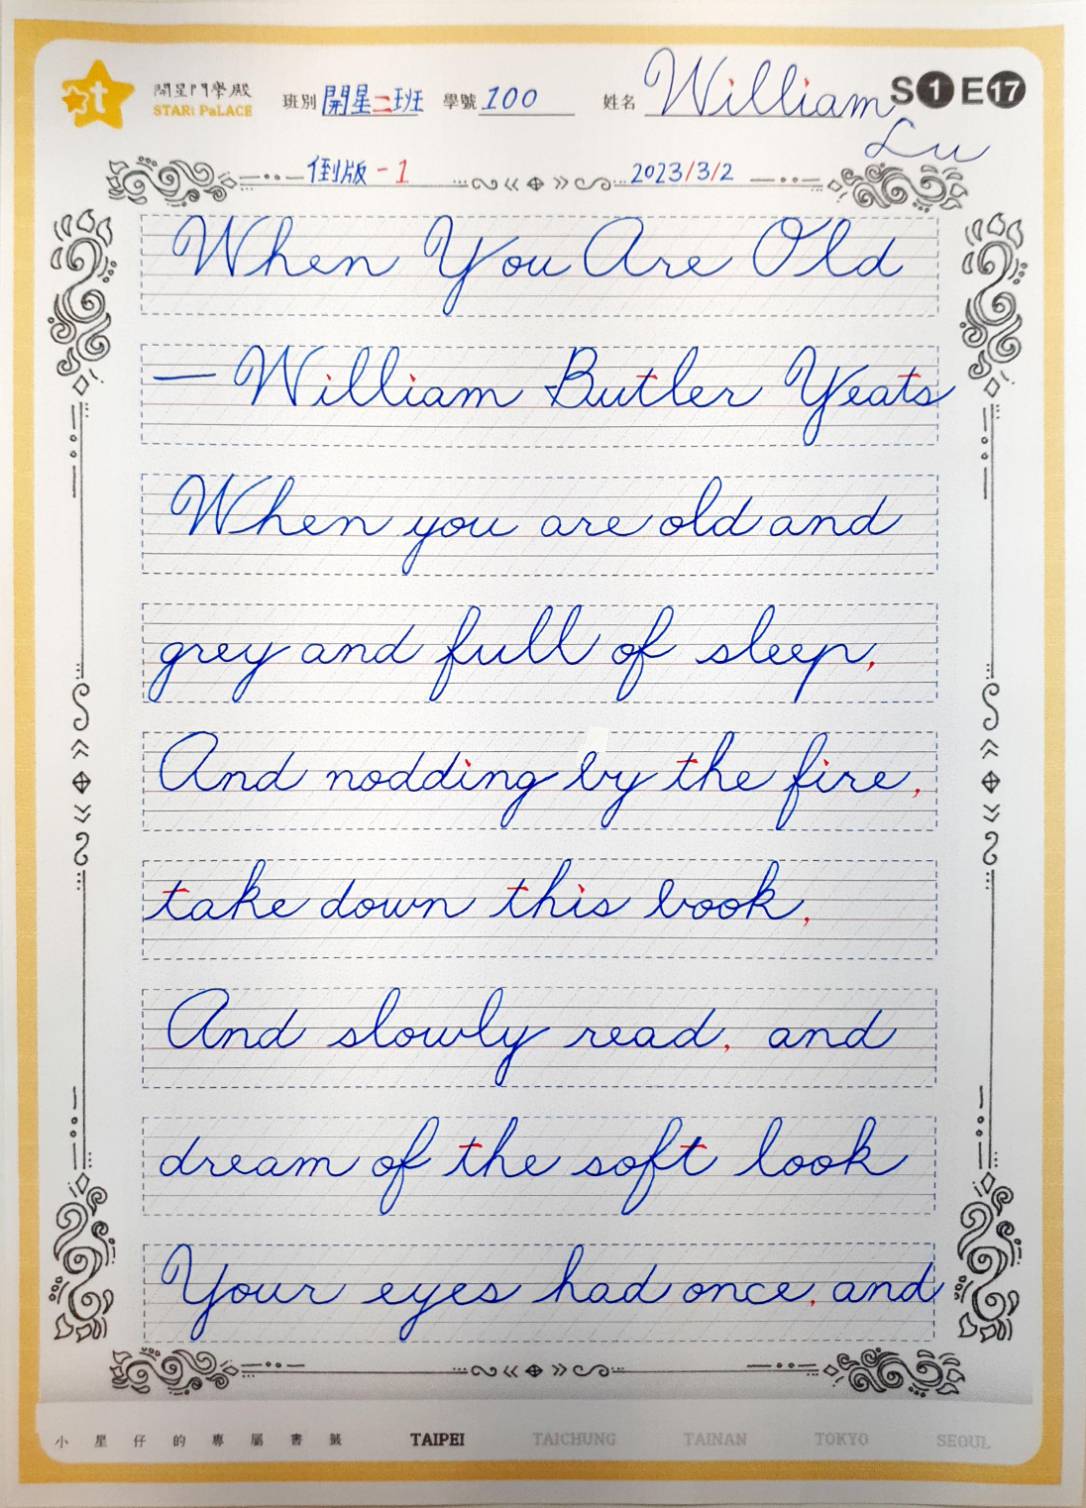 開星門學殿 班別 開星二班 學號 100 姓名 William Lu S1 E17
STARi PaLACE
倒版-1 2023/3/2
When You Are Old
— William Butler Yeats
When you are old and
grey and full of sleep,
And nodding by the fire,
take down this book,
And slowly read, and
dream of the soft look
Your eyes had once, and
小星仔的專屬書籤 TAIPEI TAICHUNG TAINAN TOKYO SEOUL